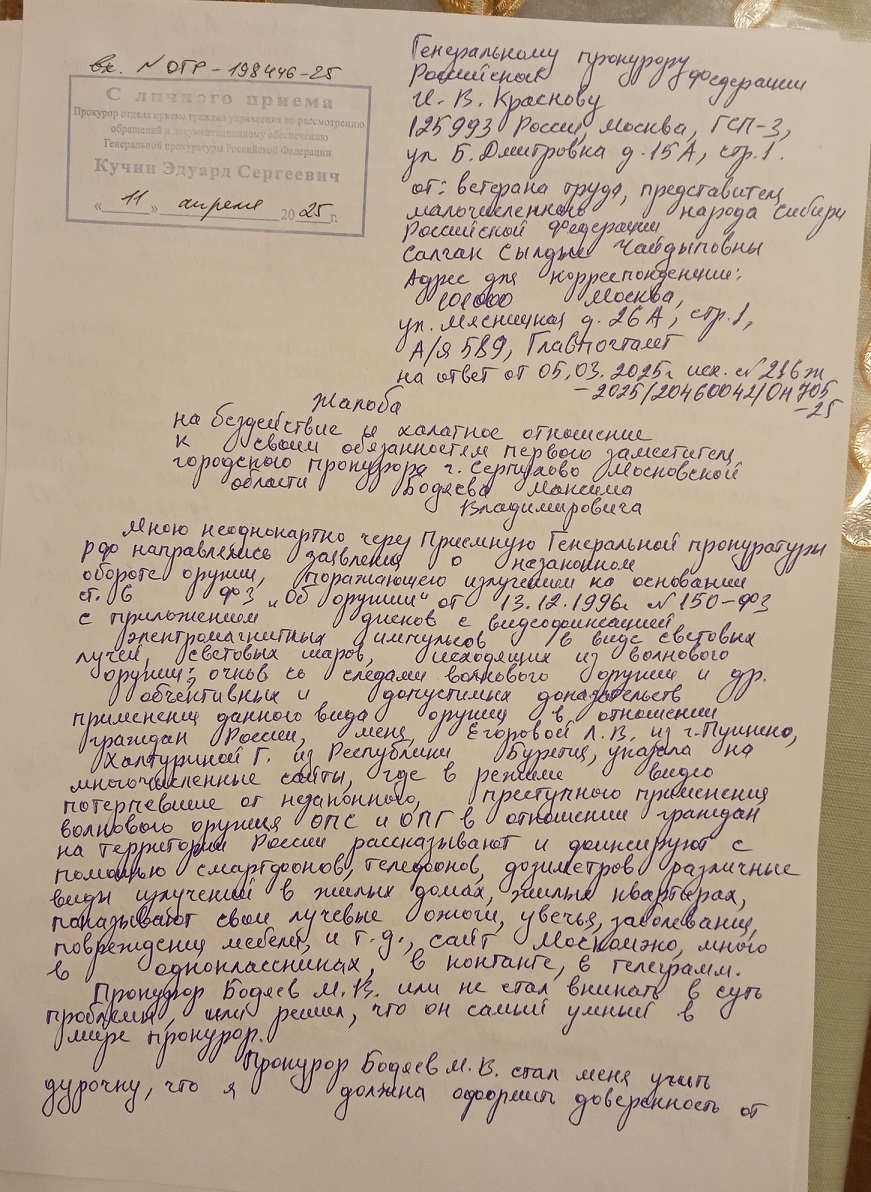 вх. № ОГР - 198446-25
С личного приема
Прокурор отдела приема граждан управления по рассмотрению
обращений и документационному обеспечению
Генеральной прокуратуры Российской Федерации
Кучин Эдуард Сергеевич
« 11 » апреля 2025 г.
Генеральному прокурору
Российской Федерации
И. В. Краснову
125993 Россия, Москва, ГСП-3,
ул Б. Дмитровка д. 15А, стр. 1.
от: ветерана труда, представител
малочисленного народа Сибири
Российской Федерации
Салчак Сылдыс Чайдыповны
Адрес для корреспонденции:
101000 Москва,
ул. Мясницкая д. 26А, стр. 1,
А/я 589, Главпочтамт
на ответ от 05.03.2025г исх. № 216ж
-2025/20460042/Он705
-25
Жалоба
на бездействие и халатное отношение
к своим обязанностям первого заместител
городского прокурора г. Серпухово Московской
области Бодяева Максима
Владимировича
Мною неоднократно через Приемную Генеральной прокуратуры
РФ направлялись заявления о незаконном
обороте оружия, поражающего излучением на основании
ст. 6 ФЗ „Об оружии" от 13.12.1996г №150-ФЗ
с приложением дисков с видеофиксацией
электромагнитных импульсов в виде световых
лучей, световых шаров, исходящих из волнового
оружия; очков со следами волнового оружия и др.
объективных и допустимых доказательств
применения данного вида оружия в отношении
граждан России, меня, Егоровой Л.В. из г. Пущино,
Халтуриной Г. из Республики Бурятия, указала на
многочисленные сайты, где в режиме видео
потерпевшие от незаконного, преступного применения
волнового оружия ОПС и ОПГ в отношении граждан
на территории России рассказывают и фиксируют с
помощью смартфонов, телефонов, дозиметров различные
виды излучений в жилых домах, жилых квартирах,
показывают свои лучевые ожоги, увечья, заболевания,
повреждения мебели, и т.д., сайт Москомэко, много
в одноклассниках, в контакте, в телеграмм.
Прокурор Бодяев М.В. или не стал вникать в суть
проблемы, или решил, что он самый умный в
мире прокурор.
Прокурор Бодяев М.В. стал меня учить
дурочку, что я должна оформить доверенность от